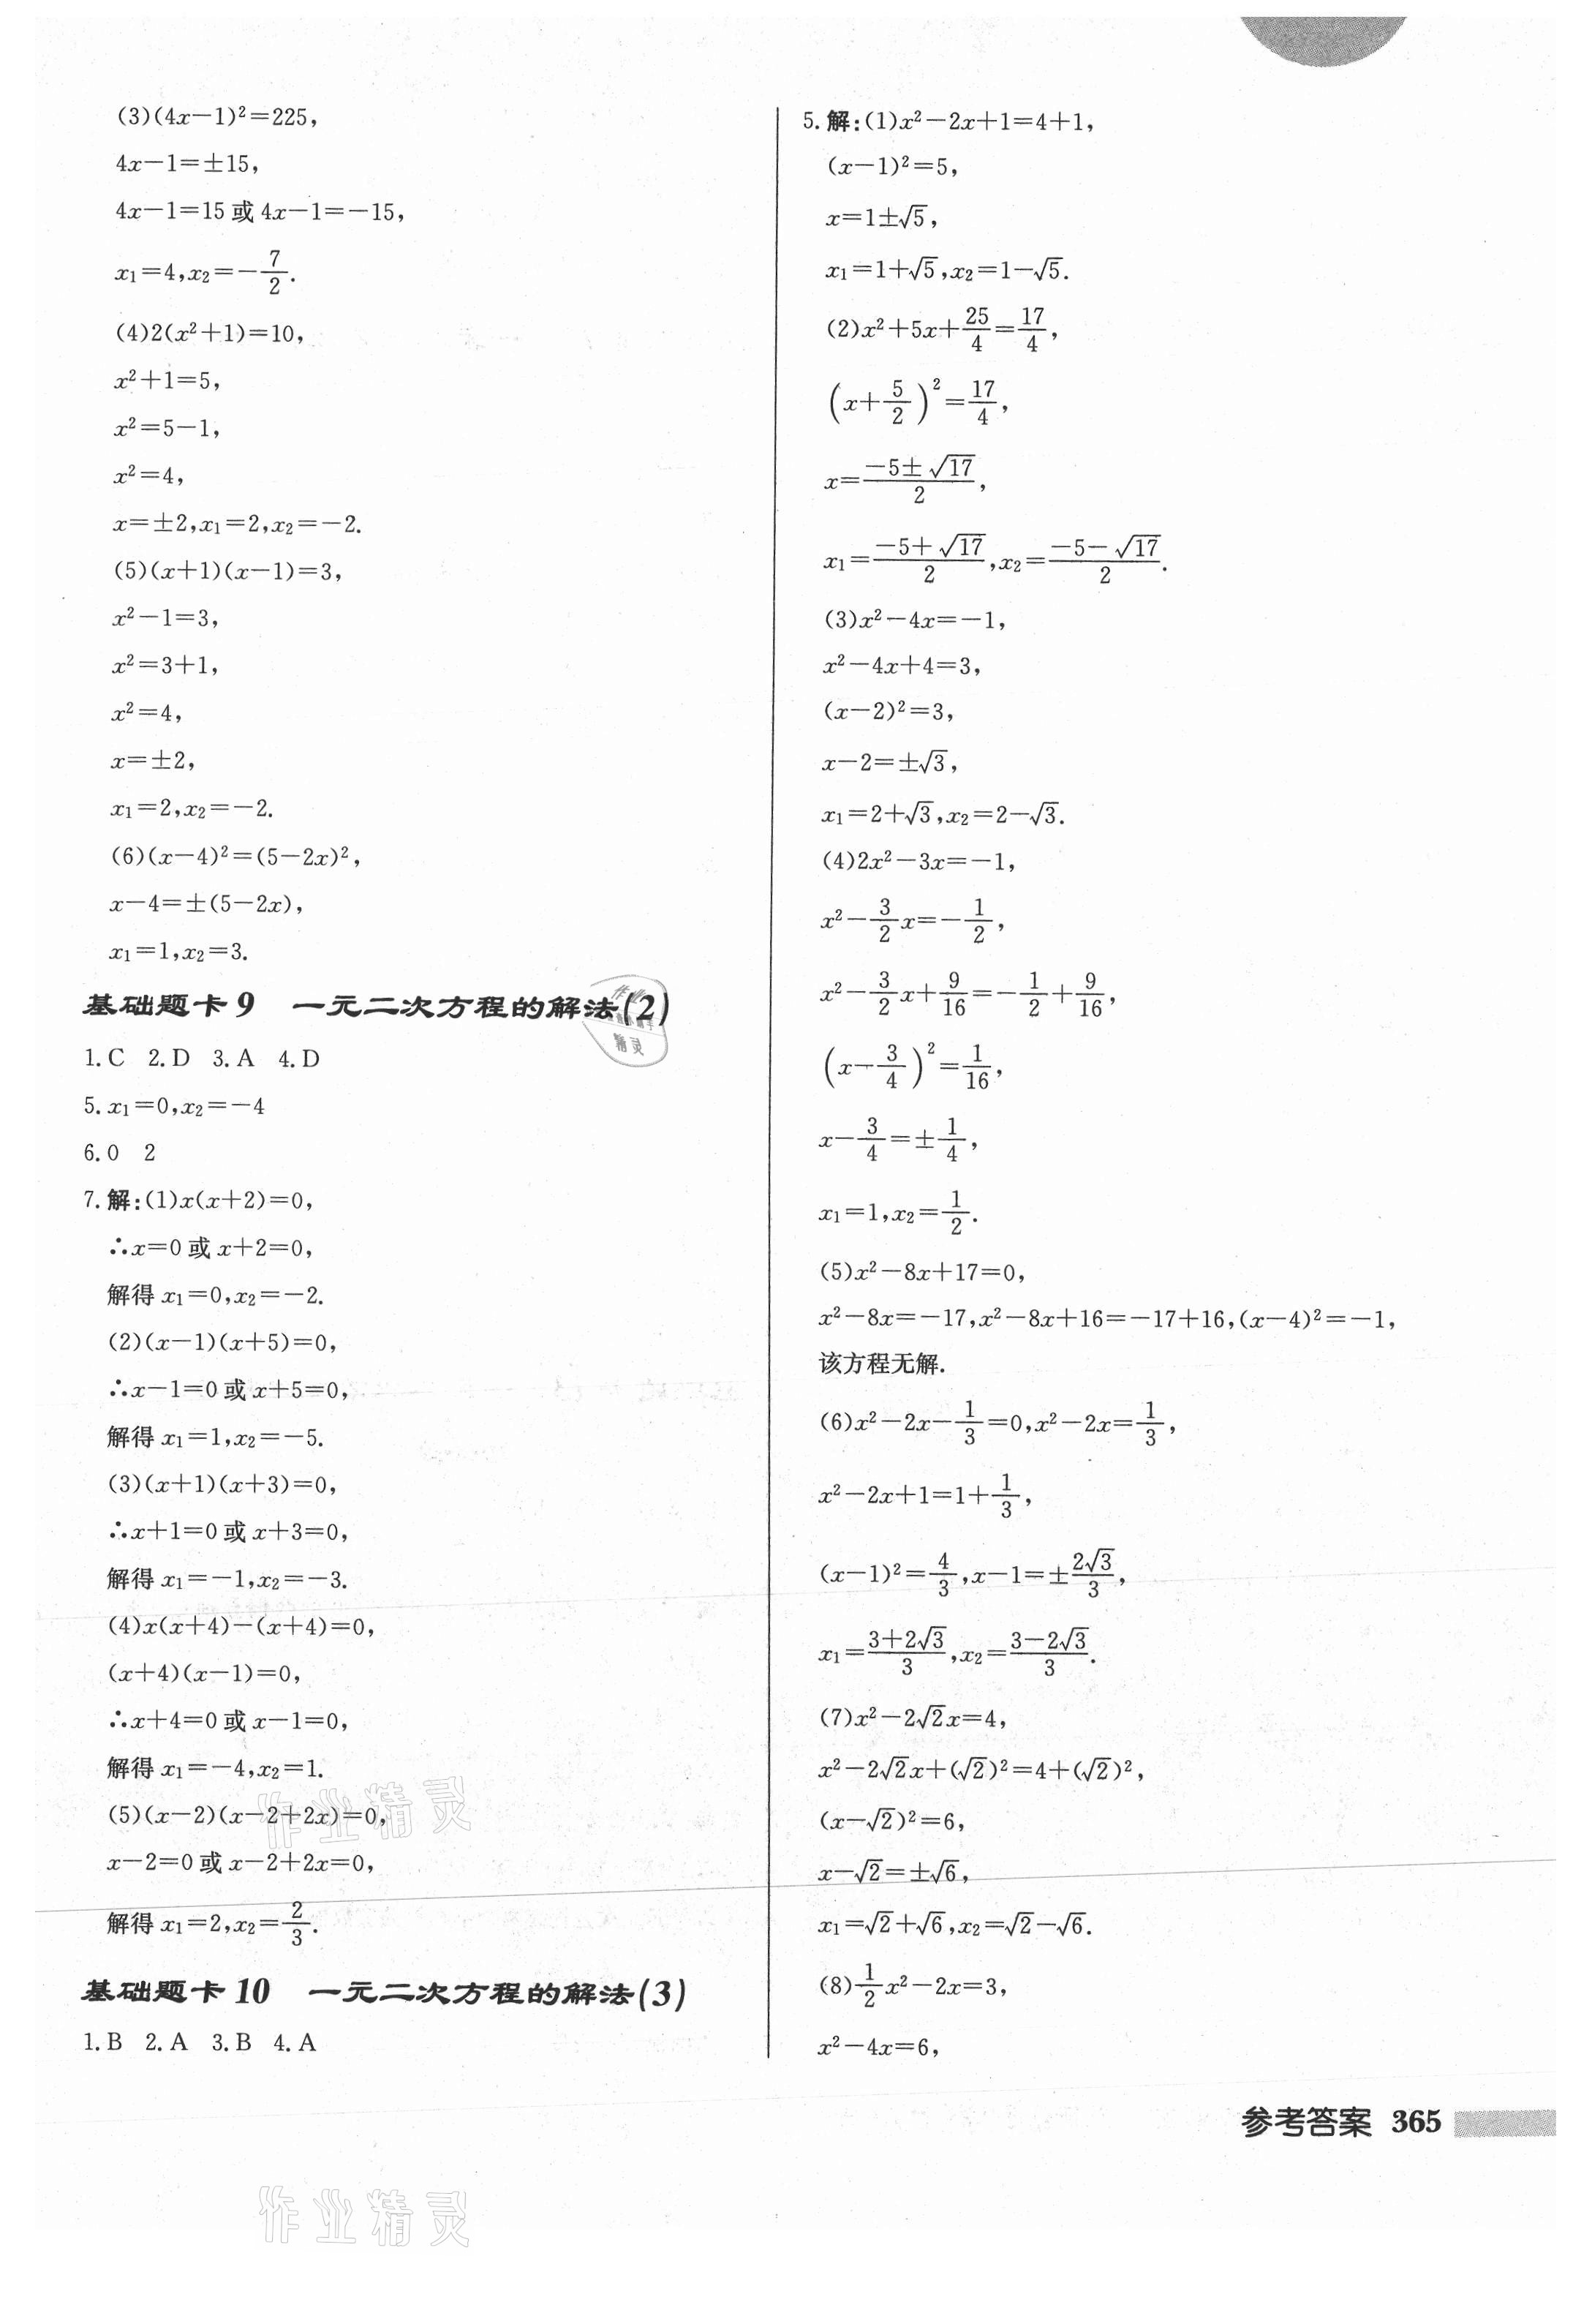 (3)(4x−1)²=225,
4x−1=±15,
4x−1=15 或 4x−1=−15,
x₁=4,x₂=−7/2.
(4)2(x²+1)=10,
x²+1=5,
x²=5−1,
x²=4,
x=±2,x₁=2,x₂=−2.
(5)(x+1)(x−1)=3,
x²−1=3,
x²=3+1,
x²=4,
x=±2,
x₁=2,x₂=−2.
(6)(x−4)²=(5−2x)²,
x−4=±(5−2x),
x₁=1,x₂=3.
基础题卡 9 一元二次方程的解法(2)
1.C 2.D 3.A 4.D
5.x₁=0,x₂=−4
6.0 2
7.解:(1)x(x+2)=0,
∴x=0 或 x+2=0,
解得 x₁=0,x₂=−2.
(2)(x−1)(x+5)=0,
∴x−1=0 或 x+5=0,
解得 x₁=1,x₂=−5.
(3)(x+1)(x+3)=0,
∴x+1=0 或 x+3=0,
解得 x₁=−1,x₂=−3.
(4)x(x+4)−(x+4)=0,
(x+4)(x−1)=0,
∴x+4=0 或 x−1=0,
解得 x₁=−4,x₂=1.
(5)(x−2)(x−2+2x)=0,
x−2=0 或 x−2+2x=0,
解得 x₁=2,x₂=2/3.
基础题卡 10 一元二次方程的解法(3)
1.B 2.A 3.B 4.A
5.解:(1)x²−2x+1=4+1,
(x−1)²=5,
x=1±√5,
x₁=1+√5,x₂=1−√5.
(2)x²+5x+25/4=17/4,
(x+5/2)²=17/4,
x=(−5±√17)/2,
x₁=(−5+√17)/2,x₂=(−5−√17)/2.
(3)x²−4x=−1,
x²−4x+4=3,
(x−2)²=3,
x−2=±√3,
x₁=2+√3,x₂=2−√3.
(4)2x²−3x=−1,
x²−3/2x=−1/2,
x²−3/2x+9/16=−1/2+9/16,
(x−3/4)²=1/16,
x−3/4=±1/4,
x₁=1,x₂=1/2.
(5)x²−8x+17=0,
x²−8x=−17,x²−8x+16=−17+16,(x−4)²=−1,
该方程无解.
(6)x²−2x−1/3=0,x²−2x=1/3,
x²−2x+1=1+1/3,
(x−1)²=4/3,x−1=±2√3/3,
x₁=(3+2√3)/3,x₂=(3−2√3)/3.
(7)x²−2√2x=4,
x²−2√2x+(√2)²=4+(√2)²,
(x−√2)²=6,
x−√2=±√6,
x₁=√2+√6,x₂=√2−√6.
(8)1/2x²−2x=3,
x²−4x=6,
参考答案 365
作业精灵
作业精灵